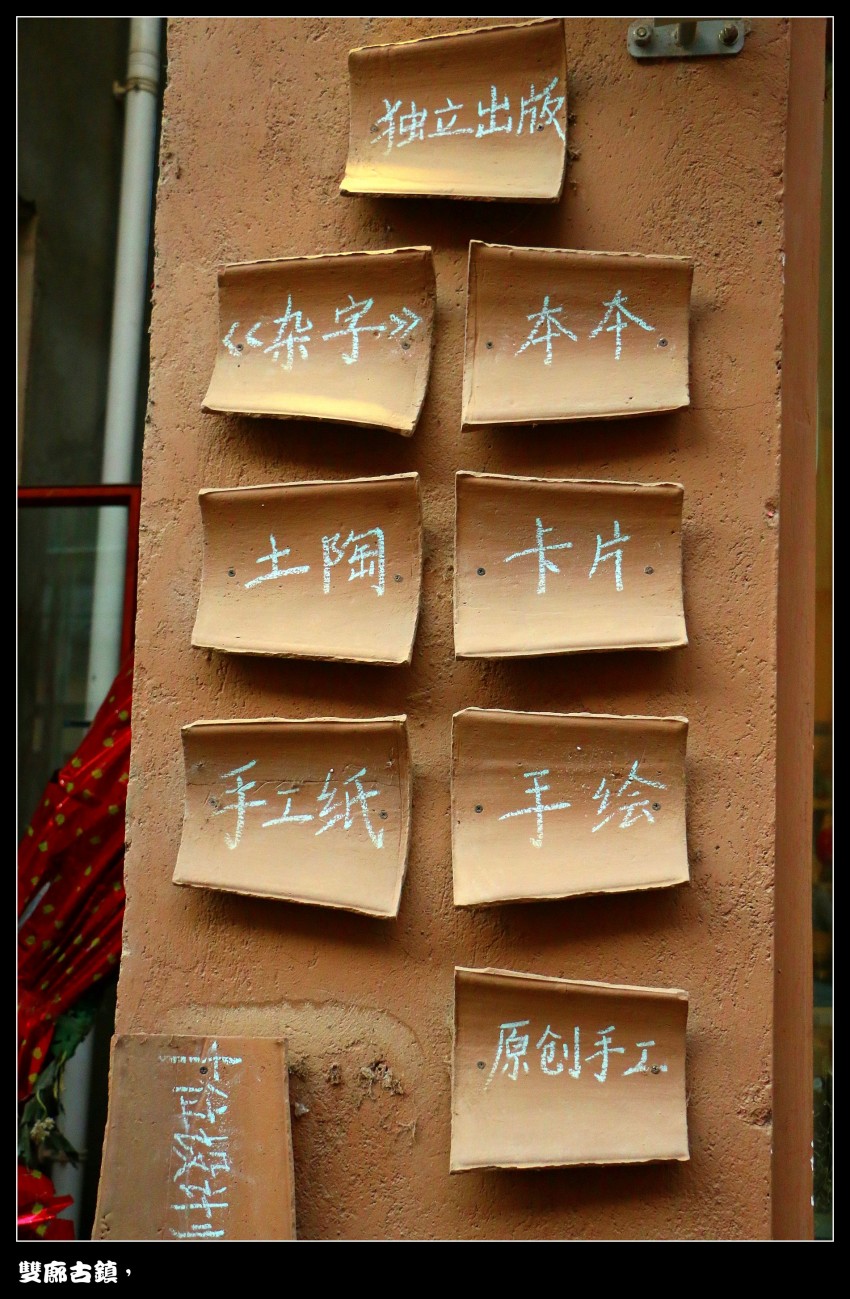 独立出版
《杂字》
本本
土陶
卡片
手工纸
手绘
原创手工
雙廊古鎮，